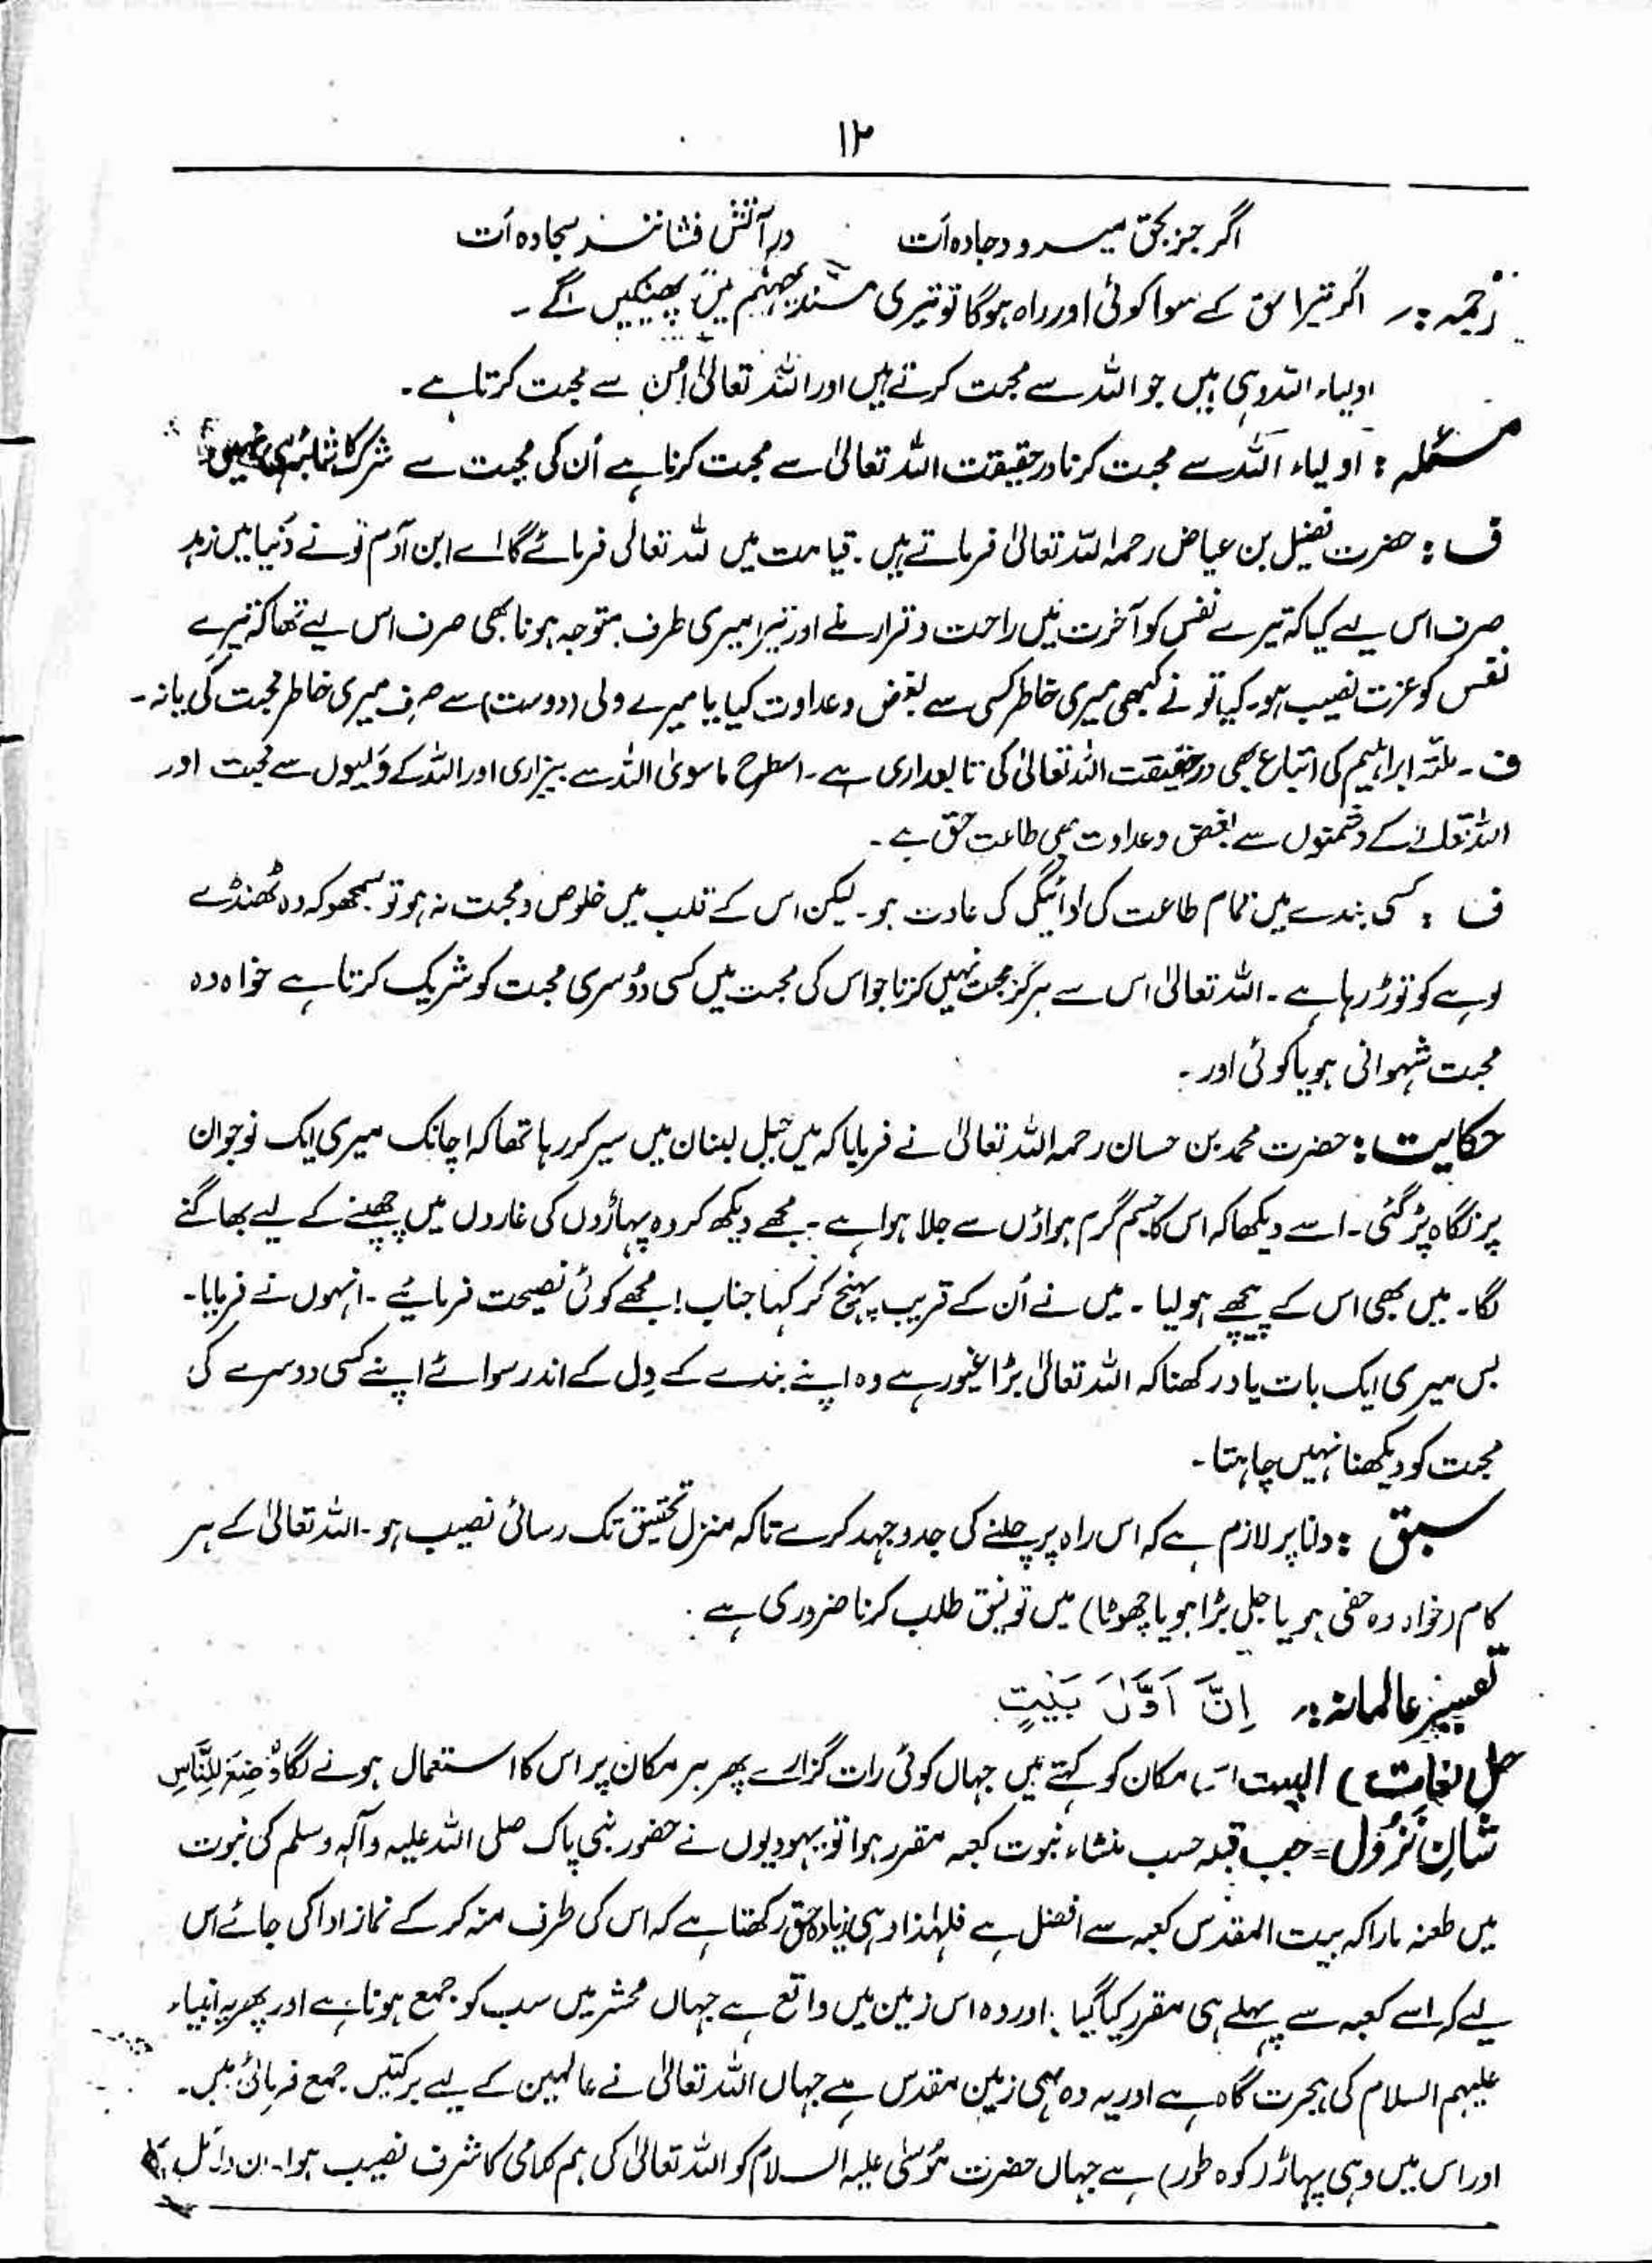 ۱۲
اگر جز بحق میرود جادہ ات در آتش فشانند سجادہ ات
ترجمہ :۔ اگر تیرا حق کے سوا کوئی اور راہ ہوگا تو تیری مسند جہنم میں پھینکیں گے ۔
اولیاء اللہ وہی ہیں جو اللہ سے محبت کرتے ہیں اور اللہ تعالیٰ اُن سے محبت کرتا ہے ۔
مسئلہ : اولیاء اللہ سے محبت کرنا درحقیقت اللہ تعالیٰ سے محبت کرنا ہے اُن کی محبت سے شرک کا شائبہ ہی نہیں
ف : حضرت فضیل بن عیاض رحمہ اللہ تعالیٰ فرماتے ہیں ۔ قیامت میں اللہ تعالیٰ فرمائے گا اے ابن آدم تو نے دُنیا میں زہد
صرف اس لیے کیا کہ تیرے نفس کو آخرت میں راحت و قرار ملے اور تیرا میری طرف متوجہ ہونا بھی صرف اس لیے تھا کہ تیرے
نفس کو عزت نصیب ہو۔ کیا تو نے کبھی میری خاطر کسی سے بغض و عداوت کیا یا میرے ولی (دوست) سے صرف میری خاطر محبت کی یا نہ ۔
ف ۔ ملۃ ابراہیم کی اتباع بھی درحقیقت اللہ تعالیٰ کی تابعداری ہے ۔ اسطرح ماسویٰ اللہ سے بیزاری اور اللہ کے ولیوں سے محبت اور
اللہ تعالیٰ کے دشمنوں سے بغض و عداوت بھی طاعت حق ہے ۔
ف : کسی بندے میں تمام طاعت کی ادائیگی کی عادت ہو ۔ لیکن اس کے قلب میں خلوص و محبت نہ ہو تو سمجھو کہ وہ ٹھنڈے
لوہے کو توڑ رہا ہے ۔ اللہ تعالیٰ اس سے ہرگز محبت نہیں کرتا جو اس کی محبت میں کسی دُوسری محبت کو شریک کرتا ہے خواہ وہ
محبت شہوانی ہو یا کوئی اور ۔
حکایت : حضرت محمد بن حسان رحمہ اللہ تعالیٰ نے فرمایا کہ میں جبل لبنان میں سیر کر رہا تھا کہ اچانک میری ایک نوجوان
پر نگاہ پڑ گئی ۔ اسے دیکھا کہ اس کا جسم گرم ہواؤں سے جلا ہوا ہے ۔ مجھے دیکھ کر وہ پہاڑوں کی غاروں میں چھپنے کے لیے بھاگنے
لگا ۔ میں بھی اس کے پیچھے ہو لیا ۔ میں نے اُن کے قریب پہنچ کر کہا جناب ! مجھے کوئی نصیحت فرمایئے ۔ انہوں نے فرمایا ۔
بس میری ایک بات یاد رکھنا کہ اللہ تعالیٰ بڑا غیور ہے وہ اپنے بندے کے دِل کے اندر سوائے اپنے کسی دوسرے کی
محبت کو دیکھنا نہیں چاہتا ۔
سبق : دانا پر لازم ہے کہ اس راہ پر چلنے کی جدوجہد کرے تاکہ منزل تحقیق تک رسائی نصیب ہو ۔ اللہ تعالیٰ کے ہر
کام (خواہ وہ خفی ہو یا جلی بڑا ہو یا چھوٹا) میں توفیق طلب کرنا ضروری ہے ۔
تفسیر عالمانہ :۔ اِنَّ اَوَّلَ بَیْتٍ
حل لغات) البیت اس مکان کو کہتے ہیں جہاں کوئی رات گزارے پھر ہر مکان پر اس کا استعمال ہونے لگا وُّضِعَ لِلنَّاسِ
شانِ نَزُول = جب قبلہ حسب منشاء نبوت کعبہ مقرر ہوا تو یہودیوں نے حضور نبی پاک صلی اللہ علیہ وآلہ وسلم کی نبوت
میں طعنہ مارا کہ بیت المقدس کعبہ سے افضل ہے فلہٰذا وہی زیادہ حق رکھتا ہے کہ اس کی طرف منہ کر کے نماز ادا کی جائے اس
لیے کہ اسے کعبہ سے پہلے ہی مقرر کیا گیا ۔ اور وہ اس زمین میں واقع ہے جہاں محشر میں سب کو جمع ہونا ہے اور پھر یہ انبیاء
علیہم السلام کی ہجرت گاہ ہے اور یہ وہ ہی زمین مقدس ہے جہاں اللہ تعالیٰ نے عالمین کے لیے برکتیں جمع فرمائی ہیں ۔
اور اس میں وہی پہاڑ (کوہ طور) ہے جہاں حضرت مُوسٰی علیہ السلام کو اللہ تعالیٰ کی ہم کلامی کا شرف نصیب ہوا۔ ان دلائل کا